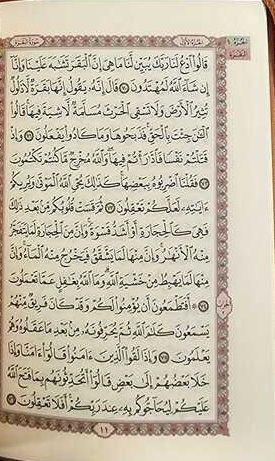 سورة البقرة
الجزء الأول
قَالُوا۟ ٱدْعُ لَنَا رَبَّكَ يُبَيِّن لَّنَا مَا هِىَ إِنَّ ٱلْبَقَرَ تَشَٰبَهَ عَلَيْنَا وَإِنَّآ
إِن شَآءَ ٱللَّهُ لَمُهْتَدُونَ ٧٠ قَالَ إِنَّهُۥ يَقُولُ إِنَّهَا بَقَرَةٌ لَّا ذَلُولٌ
تُثِيرُ ٱلْأَرْضَ وَلَا تَسْقِى ٱلْحَرْثَ مُسَلَّمَةٌ لَّا شِيَةَ فِيهَا قَالُوا۟
ٱلْـَٰٔنَ جِئْتَ بِٱلْحَقِّ فَذَبَحُوهَا وَمَا كَادُوا۟ يَفْعَلُونَ ٧١ وَإِذْ
قَتَلْتُمْ نَفْسًا فَٱدَّٰرَْٰٔتُمْ فِيهَا وَٱللَّهُ مُخْرِجٌ مَّا كُنتُمْ تَكْتُمُونَ
٧٢ فَقُلْنَا ٱضْرِبُوهُ بِبَعْضِهَا كَذَٰلِكَ يُحْىِ ٱللَّهُ ٱلْمَوْتَىٰ وَيُرِيكُمْ
ءَايَٰتِهِۦ لَعَلَّكُمْ تَعْقِلُونَ ٧٣ ثُمَّ قَسَتْ قُلُوبُكُم مِّنۢ بَعْدِ ذَٰلِكَ
فَهِىَ كَٱلْحِجَارَةِ أَوْ أَشَدُّ قَسْوَةً وَإِنَّ مِنَ ٱلْحِجَارَةِ لَمَا يَتَفَجَّرُ
مِنْهُ ٱلْأَنْهَٰرُ وَإِنَّ مِنْهَا لَمَا يَشَّقَّقُ فَيَخْرُجُ مِنْهُ ٱلْمَآءُ وَإِنَّ
مِنْهَا لَمَا يَهْبِطُ مِنْ خَشْيَةِ ٱللَّهِ وَمَا ٱللَّهُ بِغَٰفِلٍ عَمَّا تَعْمَلُونَ
٧٤ أَفَتَطْمَعُونَ أَن يُؤْمِنُوا۟ لَكُمْ وَقَدْ كَانَ فَرِيقٌ مِّنْهُمْ
يَسْمَعُونَ كَلَٰمَ ٱللَّهِ ثُمَّ يُحَرِّفُونَهُۥ مِنۢ بَعْدِ مَا عَقَلُوهُ وَهُمْ
يَعْلَمُونَ ٧٥ وَإِذَا لَقُوا۟ ٱلَّذِينَ ءَامَنُوا۟ قَالُوٓا۟ ءَامَنَّا وَإِذَا
خَلَا بَعْضُهُمْ إِلَىٰ بَعْضٍ قَالُوٓا۟ أَتُحَدِّثُونَهُم بِمَا فَتَحَ ٱللَّهُ
عَلَيْكُمْ لِيُحَآجُّوكُم بِهِۦ عِندَ رَبِّكُمْ أَفَلَا تَعْقِلُونَ ٧٦
١١